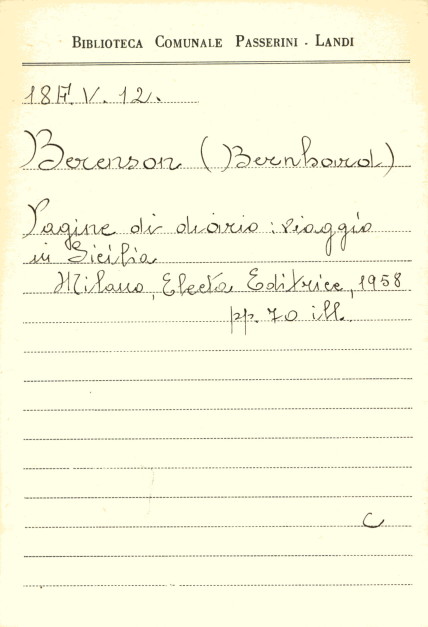 BIBLIOTECA COMUNALE PASSERINI - LANDI
187. V. 12.
Berenson (Bernhard)
Pagine di diario: viaggio
in Sicilia
Milano, Electa Editrice, 1958
pp. 70 ill.
C